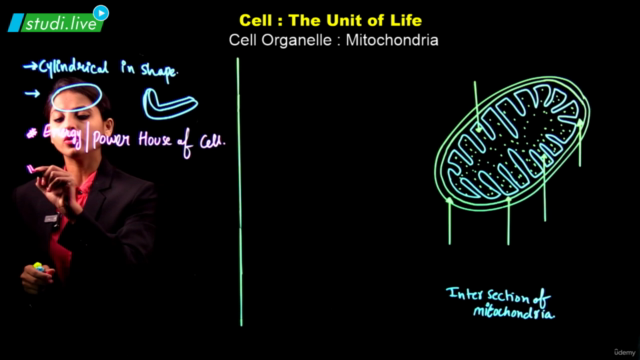 studi.live
Cell : The Unit of Life
Cell Organelle : Mitochondria
→Cylindrical in shape.
→
* Energy | Power House of Cell.
Inter section of
mitochondria
ûdemy